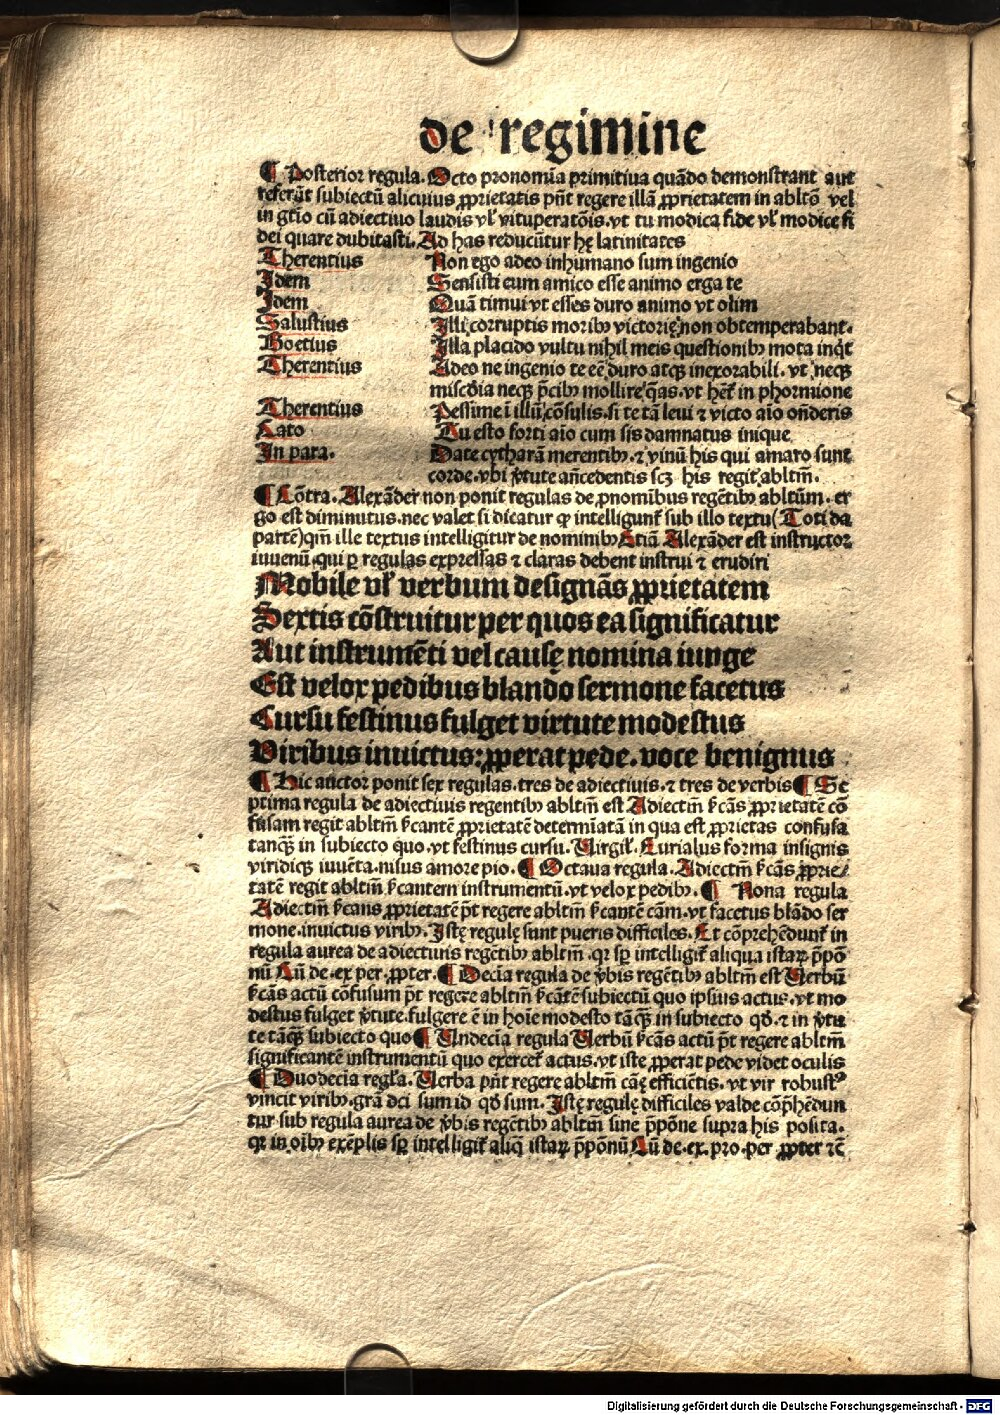 de regimine
¶ Posterior regula. Octo pronomīa primitiua quādo demonstrant aut
referūt subiectū alicuius ꝓprietatis pn̄t regere illā ꝓprietatem in ablt̄o vel
in gt̄io cū adiectiuo laudis vl' vituperatōis. vt tu modica fide vl' modice fi
dei quare dubitasti. Ad has reducūtur hę latinitates
Therentius Non ego adeo inhumano sum ingenio
Idem Sensisti eum amico esse animo erga te
Idem Quā timui vt esses duro animo vt olim
Salustius Illi corruptis moribꝰ victorię non obtemperabant.
Boetius Illa placido vultu nihil meis questionibꝫ mota inq̄t
Therentius Adeo ne ingenio te eē duro atqꝫ inexorabili. vt neqꝫ
miscd̄ia neqꝫ p̄cibꝫ mollire q̄as. vt het̄ in phormione
Therentius Pessime ī illū cōsulis. si te tā leui ⁊ victo aīo on̄deris
Cato Tu esto forti aīo cum sis damnatus inique
In para. Date cytharā merentibꝫ. ⁊ vinū his qui amaro sunt
corde. vbi v̄tute an̄cedentis scꝫ his regit abltm̄.
¶ Cōtra. Alexāder non ponit regulas de ꝓnomībus regētibꝫ abltūm. er
go est diminutus. nec valet si dicatur ꝙ intelligunt̄ sub illo textu (Toti da
partē) qm̄ ille textus intelligitur de nominibꝫ Etiā Alexāder est instructor
iuuenū. qui ꝑ regulas expressas ⁊ claras debent instrui ⁊ erudiri
Mobile vl' verbum designās ꝓprietatem
Sextis cōstruitur per quos ea significatur
Aut instrumēti vel causę nomina iunge
Est velox pedibus blando sermone facetus
Cursu festinus fulget virtute modestus
Viribus inuictus: ꝓperat pede. voce benignus
¶ Hic auctor ponit sex regulas. tres de adiectiuis. ⁊ tres de verbis ¶ Se
ptima regula de adiectiuis regentibꝫ abltm̄ est Adiectm̄ s̄cās ꝓprietatē cō
fusam regit abltm̄ s̄cantē ꝓprietatē determīatā in qua est ꝓprietas confusa
tanqꝫ in subiecto quo. vt festinus cursu. Virgil'. Eurialus forma insignis
viridiqꝫ iuuēta. nisus amore pio. ¶ Octaua regula. Adiectm̄ s̄cās ꝓprie/
tatē regit abltm̄ s̄cantem instrumentū. vt velox pedibꝫ. ¶ Nona regula
Adiectm̄ s̄cans ꝓprietatē pt̄ regere abltm̄ s̄cantē cām. vt facetus blādo ser
mone. inuictus viribꝫ. Istę regulę sunt pueris difficiles. Et cōprehēdunt̄ in
regula aurea de adiectiuis regētibꝫ abltm̄. qꝛ sꝑ intelligit̄ aliqua istaꝝ p̄pō
nū Cū de. ex per. ꝓpter. ¶ Decīa regula de v̄bis regētibꝫ abltm̄ est Verbū
s̄cās actū cōfusum pt̄ regere abltm̄ s̄cātē subiectū quo ipsius actus. vt mo
destus fulget v̄tute. fulgere ē in hoīe modesto tāqꝫ in subiecto qd̄. ⁊ in v̄tu
te tāqꝫ subiecto quo ¶ Undecīa regula Verbū s̄cās actū pt̄ regere abltm̄
significantē instrumentū quo exercet̄ actus. vt iste ꝓperat pede videt oculis
¶ Duodecīa regl'a. Verba pn̄t regere abltm̄ cāę efficiētis. vt vir robustꝰ
vincit viribꝫ. grā dei sum id qd̄ sum. Istę regulę difficiles valde cōp̄hēdun
tur sub regula aurea de v̄bis regētibꝫ abltm̄ sine p̄pōne supra his posita.
qꝛ in oībꝫ exēplis sꝑ intelligit̄ aliq̄ istaꝝ p̄pōnū Cū de. ex. pro. per ꝓpter ⁊c̄
Digitalisierung gefördert durch die Deutsche Forschungsgemeinschaft - DFG